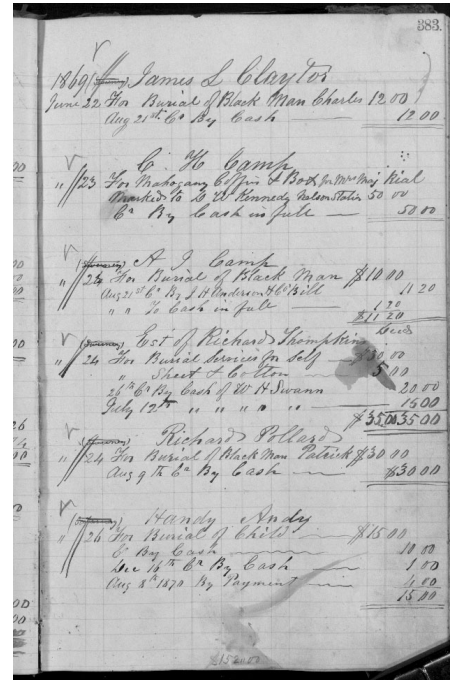 383.
1869 James L Claytor
June 22 For Burial of Black Man Charles 12 00
Aug 21st Cr By Cash 12 00
C. H. Camp
" 23 For Mahogany Coffin & Box for Mrs Maj Rial
Marked to Kennedy Nelson Station 50 00
Cr By Cash in full 50 00
A J Camp
" 24 For Burial of Black Man $10 00
Aug 21st Cr By J H Anderson & Co Bill 11 20
" " To Cash in full 1 20
$11 20
Est of Richard Thompkins Decd
" 24 For Burial Services for Self $30.00
" Sheet & Cotton 5 00
26th Cr By Cash of W H Swann 20 00
July 12th " " " " " 15 00
$35 00 35 00
Richard Pollard
" 24 For Burial of Black Man Patrick $30 00
Aug 9th Cr By Cash $30 00
Handy Andy
" 26 For Burial of Child $15 00
Cr By Cash 10 00
Dec 16th Cr By Cash 1 00
Aug 8th 1870 By Payment 4 00
15 00